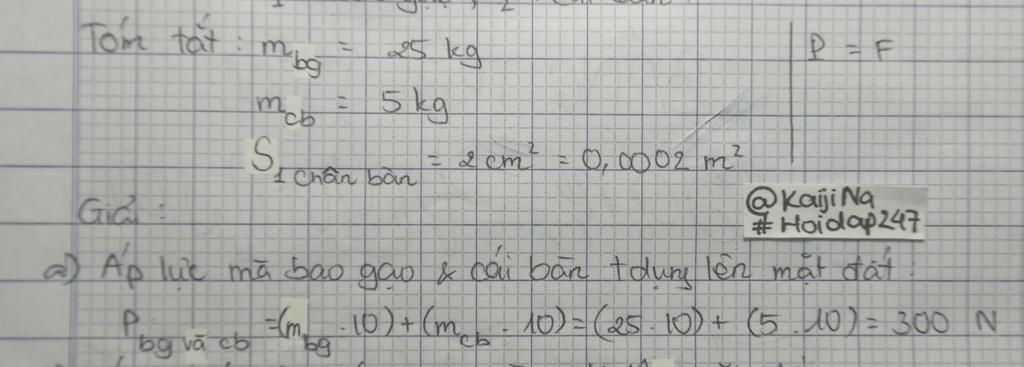 Tóm tắt : m bg = 25 kg
P = F
m cb = 5 kg
S 1 chân bàn = 2 cm² = 0,0002 m²
@KaijiNa
#Hoidap247
Giải :
a) Áp lực mà bao gạo & cái bàn tdụng lên mặt đất :
P bg và cb = (m bg . 10) + (m cb . 10) = (25 . 10) + (5 . 10) = 300 N